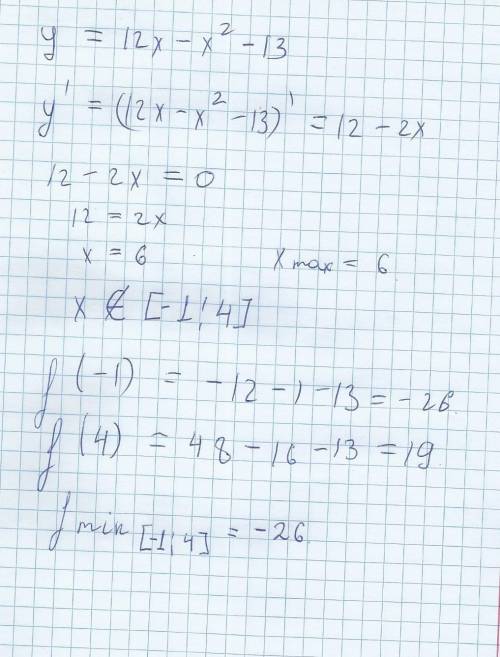 y = 12x - x² - 13
y' = (12x - x² - 13)' = 12 - 2x
12 - 2x = 0
12 = 2x
x = 6 x max = 6
x ∉ [-1; 4]
f(-1) = -12 - 1 - 13 = -26.
f(4) = 48 - 16 - 13 = 19.
f min [-1; 4] = -26.